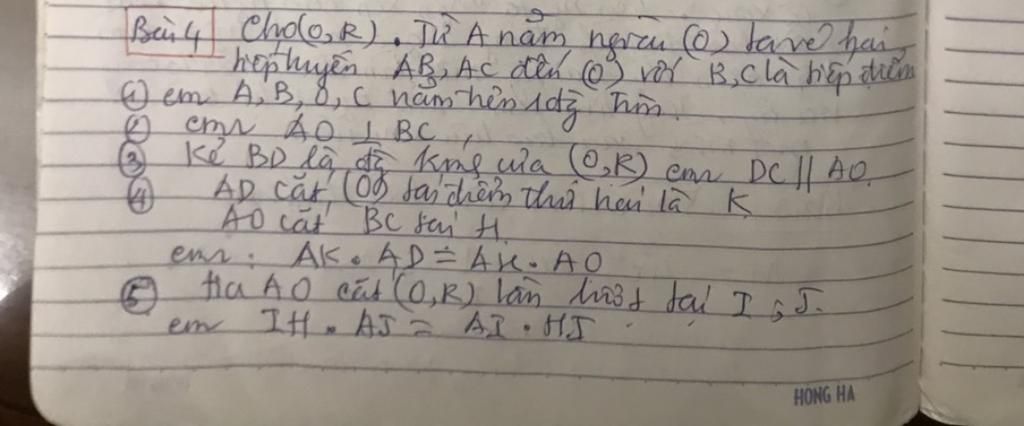 Bài 4 Cho (O,R). Từ A nằm ngoài (O) ta vẽ hai
tiếp tuyến AB, AC đến (O) với B, C là tiếp điểm
① cm A, B, O, C nằm trên 1 đg tròn.
② cmr AO ⊥ BC,
③ Kẻ BD là đg kính của (O,R) cmr DC // AO.
④ AD cắt (O) tại điểm thứ hai là K
AO cắt BC tại H.
cmr: AK . AD = AH . AO
⑤ tia AO cắt (O,R) lần lượt tại I ; J.
cm IH . AJ = AI . HJ
HONG HA